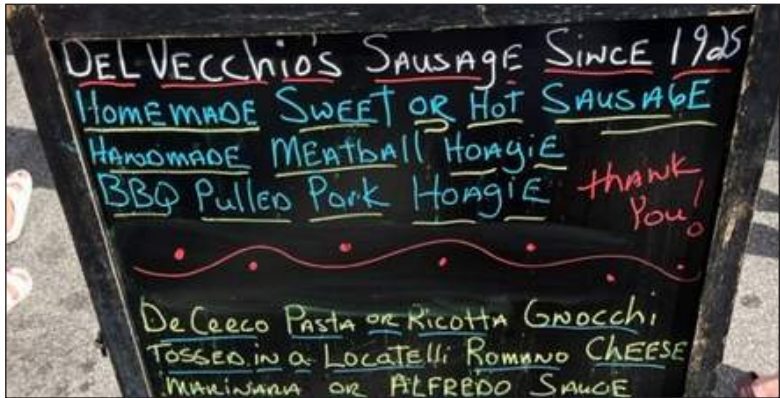 DELVECChiO'S SAUSAgE SiNCE 1925
HOMEMADE SWEET OR HOT SAUSAGE
HANDMADE MEAtbAll HOAgiE
BBQ PullED PORk HOAgiE
thANK
You!
De Cecco PAStA OR RiCOttA GNOCChi
TOSSED iN a LOCATElli ROMANO ChEESE
MARiNARA OR ALFREDO SAUCE